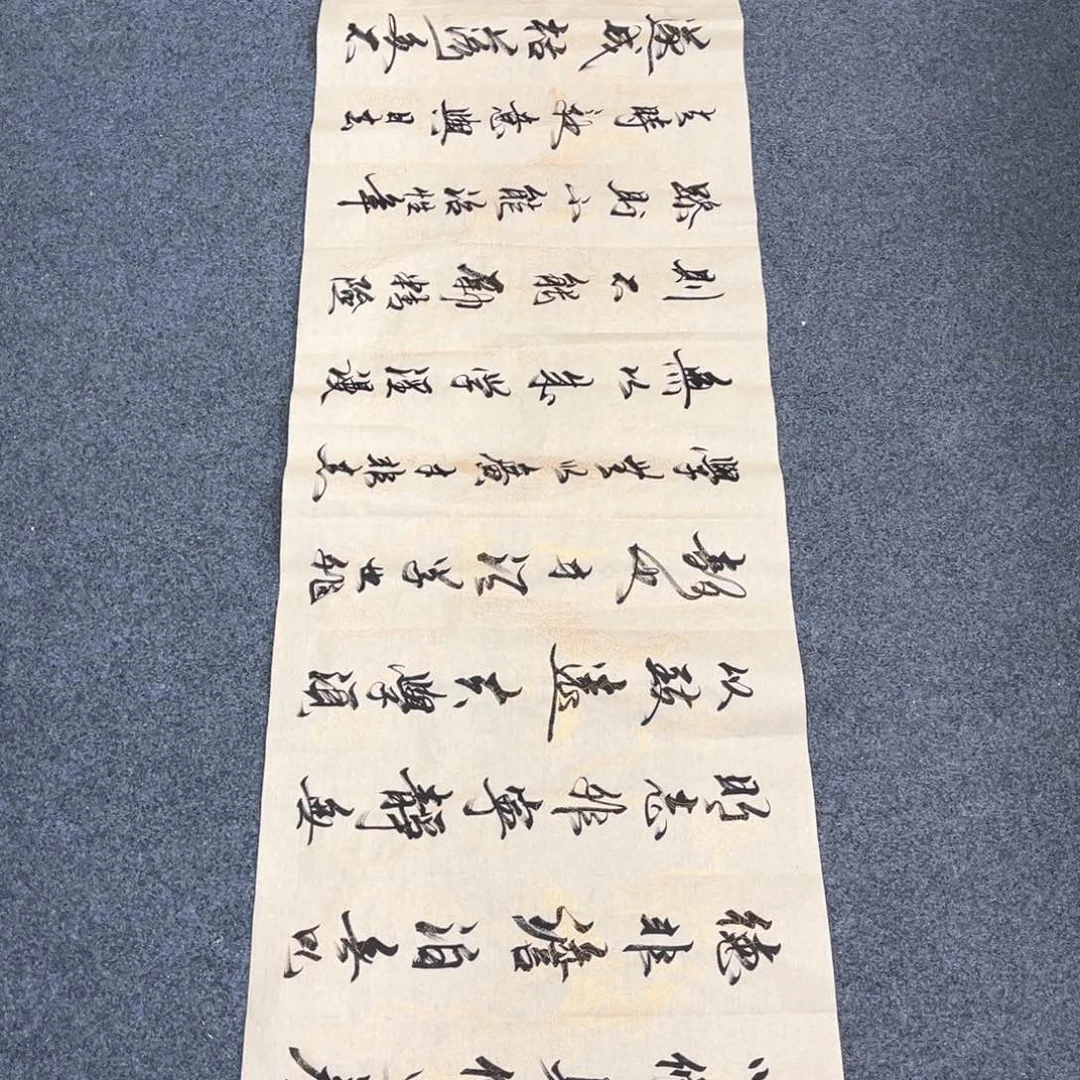 以修身儉以養
德非澹泊無以
明志非寧靜無
以致遠夫學須
靜也才須學也非
學無以廣才非志
無以成學淫慢
則不能勵精險
躁則不能治性年
與時馳意與日去
遂成枯落多不